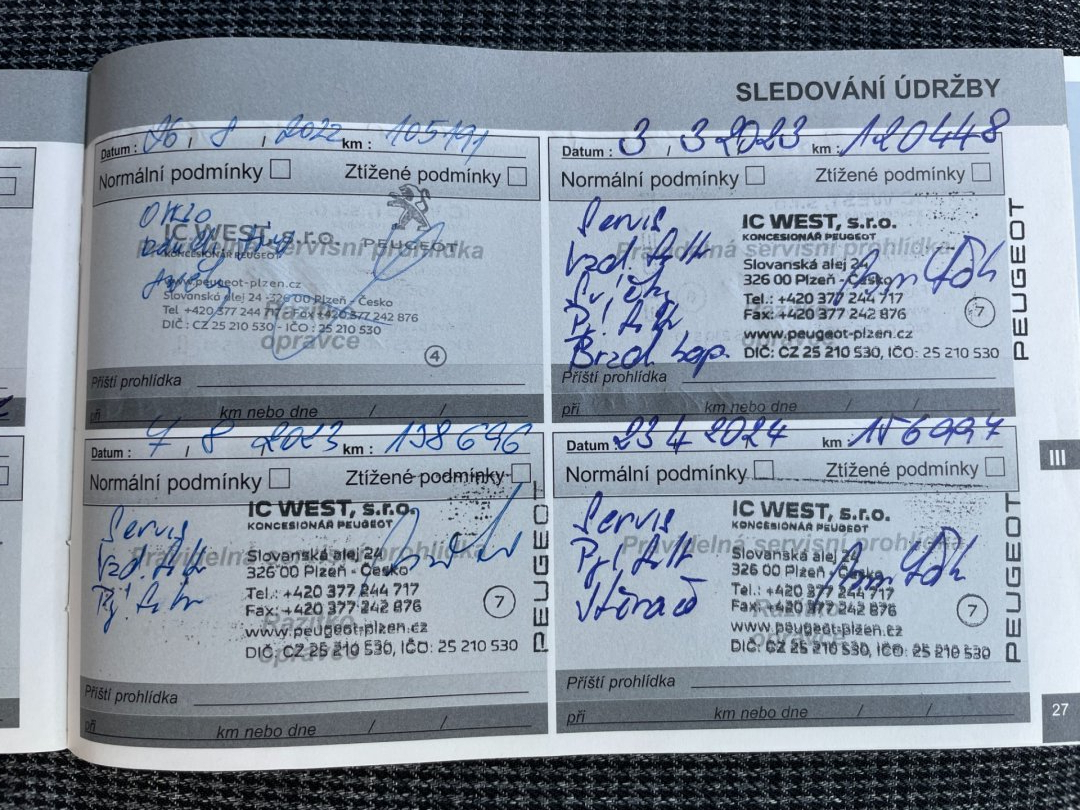 SLEDOVÁNÍ ÚDRŽBY
Datum : 26 / 8 / 2022 km : 105191
Normální podmínky Ztížené podmínky
IC WEST, s.r.o. PEUGEOT
Pravidelná servisní prohlídka
KONCESIONÁŘ PEUGEOT
www.peugeot-plzen.cz
Slovanská alej 24 - 326 00 Plzeň - Česko
Tel +420 377 244 717 - Fax +420 377 242 876
Razítko
DIČ : CZ 25 210 530 - IČO : 25 210 530
opravce
4
Příští prohlídka
při km nebo dne / /
Datum : 3 / 3 2023 km : 120448
Normální podmínky Ztížené podmínky
Servis
IC WEST, s.r.o.
KONCESIONÁŘ PEUGEOT
Vzd. filtr
Pravidelná servisní prohlídka
Slovanská alej 24
326 00 Plzeň - Česko
Tel.: +420 377 244 717
Fax: +420 377 242 876
7
www.peugeot-plzen.cz
DIČ: CZ 25 210 530, IČO: 25 210 530
Brzd. kap.
PEUGEOT
Příští prohlídka
při km nebo dne / /
Datum : 7 / 8 2023 km : 138696
Normální podmínky Ztížené podmínky
Servis
IC WEST, s.r.o.
KONCESIONÁŘ PEUGEOT
Vzd. filtr
Pravidelná servisní prohlídka
Slovanská alej 24
326 00 Plzeň - Česko
Tel.: +420 377 244 717
Fax: +420 377 242 876
7
Razítko
www.peugeot-plzen.cz
opravce
DIČ: CZ 25 210 530, IČO: 25 210 530
PEUGEOT
Příští prohlídka
při km nebo dne / /
Datum 23 4 2024 km : 156997
Normální podmínky Ztížené podmínky
Servis
IC WEST, s.r.o.
KONCESIONÁŘ PEUGEOT
Pravidelná servisní prohlídka
Slovanská alej 24
326 00 Plzeň - Česko
Tel.: +420 377 244 717
Fax: +420 377 242 876
7
www.peugeot-plzen.cz
DIČ: CZ 25 210 530, IČO: 25 210 530
PEUGEOT
Příští prohlídka
při km nebo dne / /
III
27